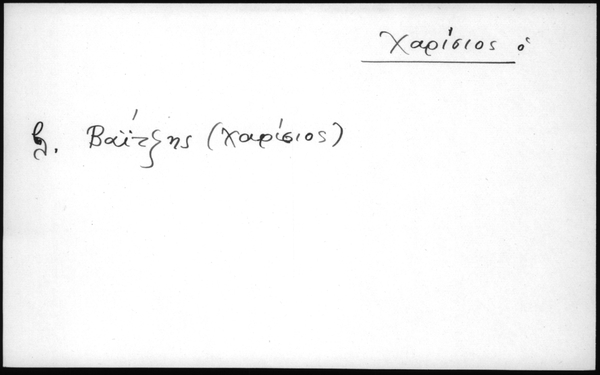 Χαρίσιος ὁ
βλ. Βαΐτζης (Χαρίσιος)